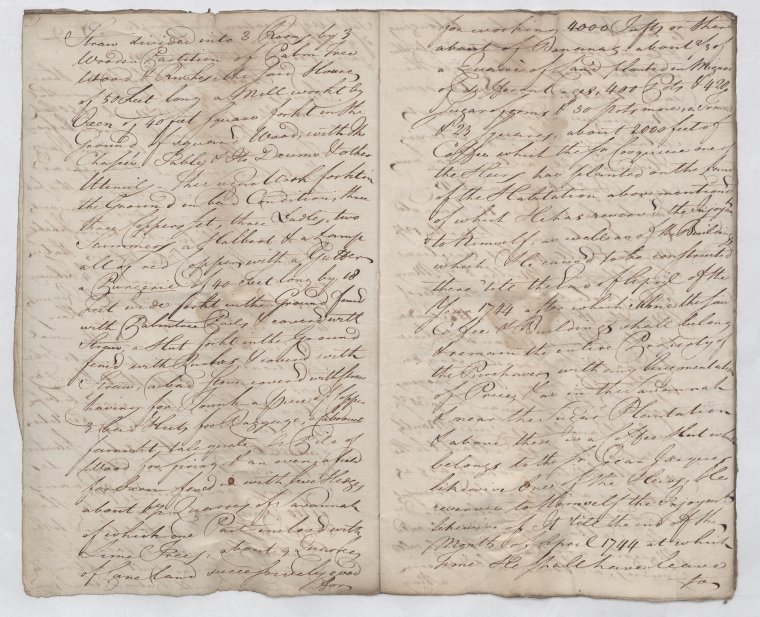 Straw divided into 3 Rooms by 3
Wooden Partition of Palm tree
Wood & the said House
of 50 feet long a Mill workt by
Oxen of 40 feet square forkt in the
Ground of squared Wood, with the
Chases Table & the Drums & other
Utensils. Wash forkt in
the Ground in bad Condition, three
Coppers set, three Ladles, two
Scummers, a & a Lamp
all of red Copper with a Gutter
a of 40 Feet long by 18
Feet wide forkt in the Ground fenced
with Palmtree Pails & covered with
Straw a Hut forkt in the Ground
fenced with & covered with
Straw a bad covered with straw
having for a piece of
3 bad Huts for Baggage, a
a Pile of
Wood for firing & an oven, a
for fenced in with five Hedges
about of Savannah
of which one Part is with
Lime Trees, about 9 Quarries
of Cane land successively good
for
for working, 4000 or there
about of Bananas about 2/3 of
a Quarrie of Land planted in
of different ages, 400 & 420
& 30 Pots more, a
& 23 Squares, about 2000 feet of
Coffee which the one of
the Heirs has planted on the
of the Habitation abovementioned
of which He has reserved the Enjoyment
to himself, as well as of the Buildings
which He caused to be constructed
there 'till the End of April of the
Year 1744 after which time the said
Coffee & Buildings shall belong
& remain the entire Property of
the Purchaser without any Augmentation
of Price, & as in the Savannah
I mean the Sugar Plantation
& above there is a Coffee Hut which
belongs to the Sr. Jean Jacques
likewise one of the Heirs, He
reserves to himself the Enjoyment
likewise of it till the end of the
Month of April 1744 at which
time He shall have leave
to